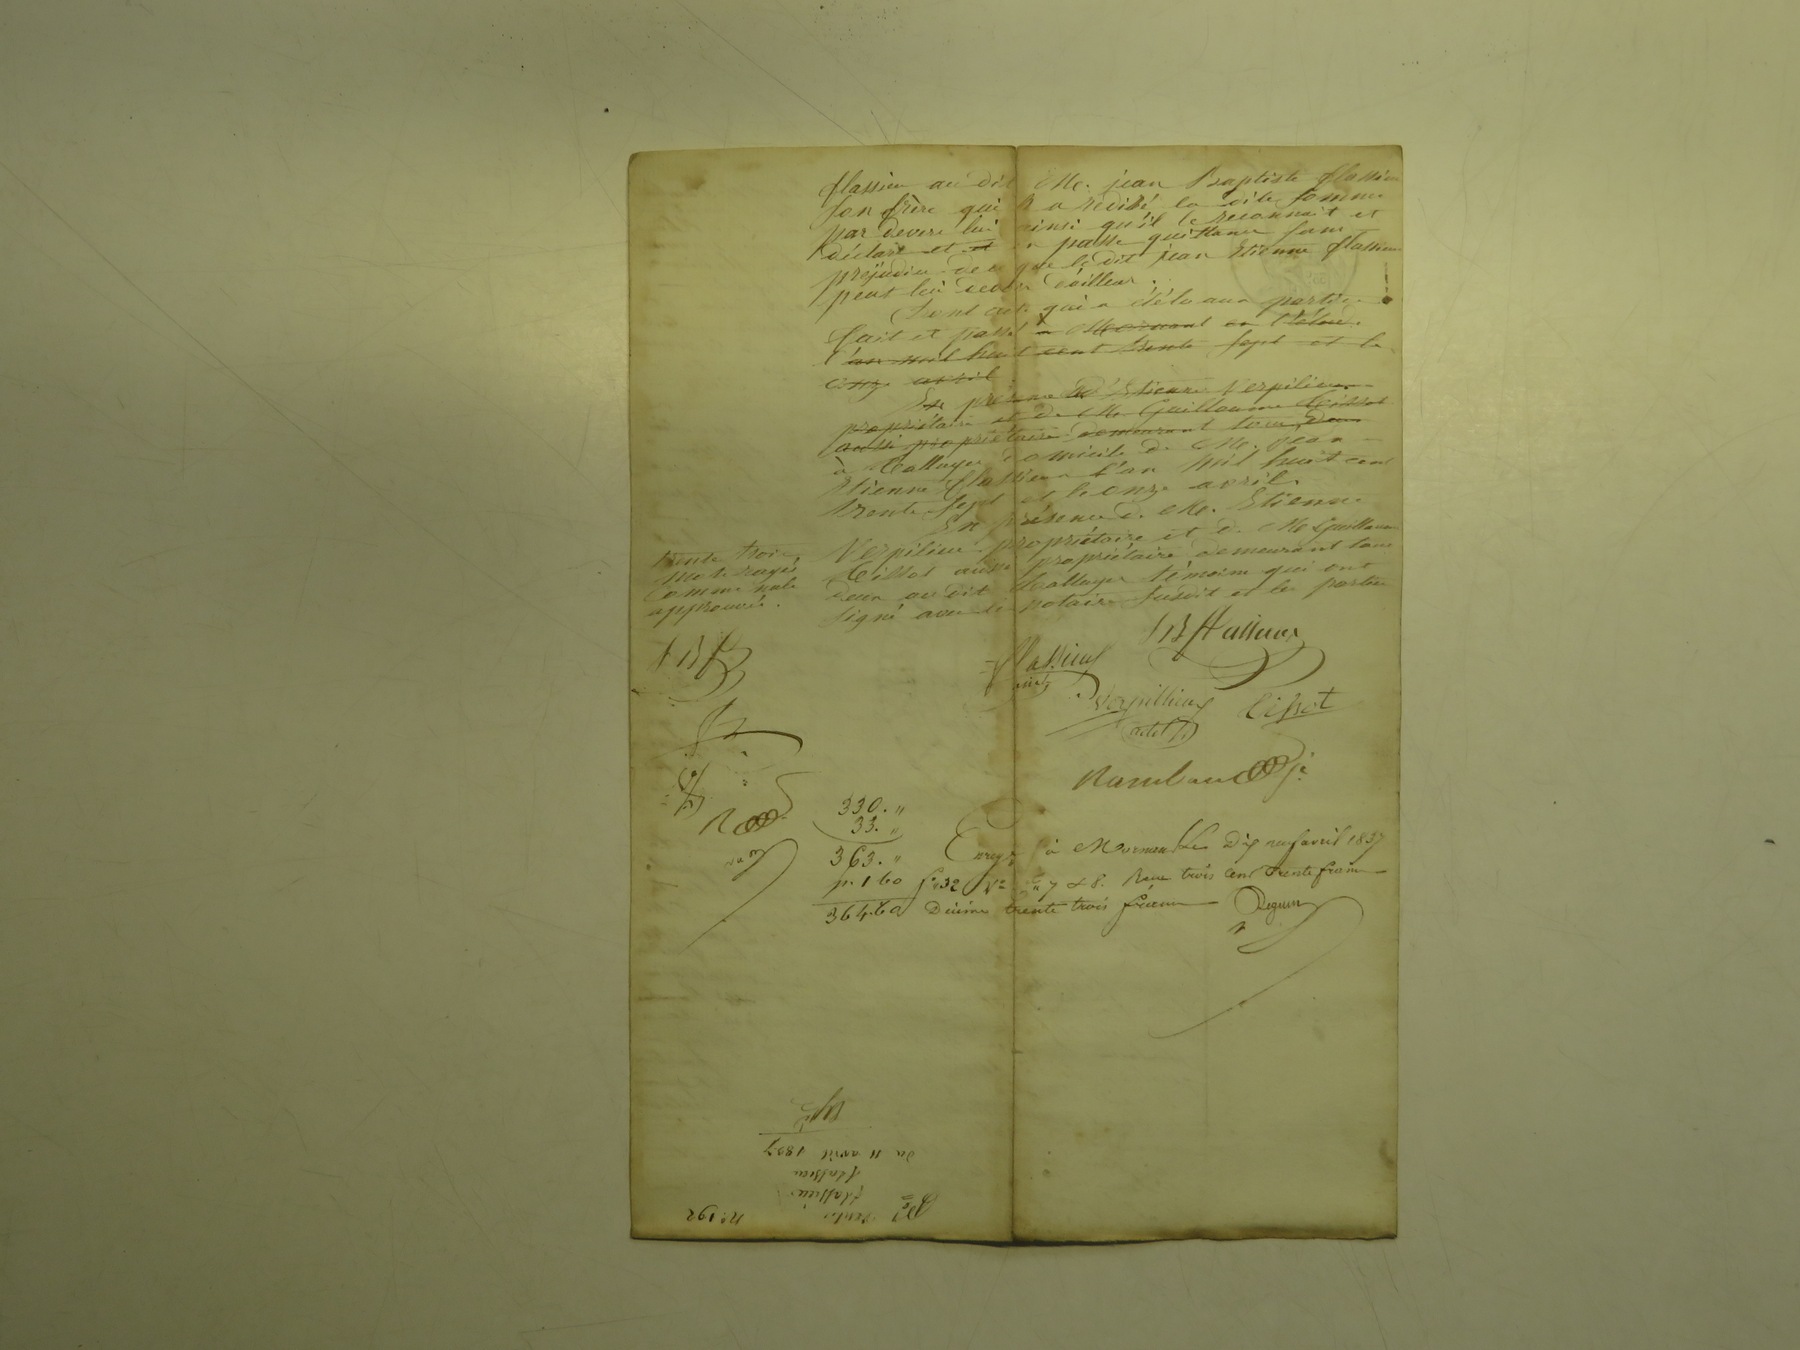 flassieu au dit Me. jean Baptiste flassieu
son frère qui l'a recidé la dite somme
par devers lui ainsi qu'il le reconnait et
déclare et et en passe quittance sans
préjudice de ce que le dit jean Etienne flassieu
peut lui devoir d'ailleur.
Dont acte qui a été lu aux parties
fait et passé a Mornant en l'étude
l'an mil huit cent trente sept et le
onze avril
En présence de Me Etienne Verpilieu
propriétaire et de Me Guillaume Tissot
aussi propriétaire demeurant tous deux
à Talluyer domicile de Me. jean
Etienne flassieu l'an mil huit cent
trente sept et le onze avril.
En présence de Me. Etienne
Verpilieu propriétaire et de Me Guillaume
Tissot aussi propriétaire demeurant tous
deux au dit Talluyer témoins qui ont
signé avec le notaire susdit et les parties
trente trois
mots rayés
comme nuls
approuvés.
J B f
J B flassieux
flassieux
Verpillieux
Tissot
Rambaud
330. "
33. "
363. "
p. 1 60
364.60
Enregé à Mornant Le Dix neuf avril 1837
fo 32 Vo 7 & 8. Recu trois cent Trente francs
Décime trente trois francs
No. 192
Vente
flassieu
à
flassieu
du 11 avril 1837